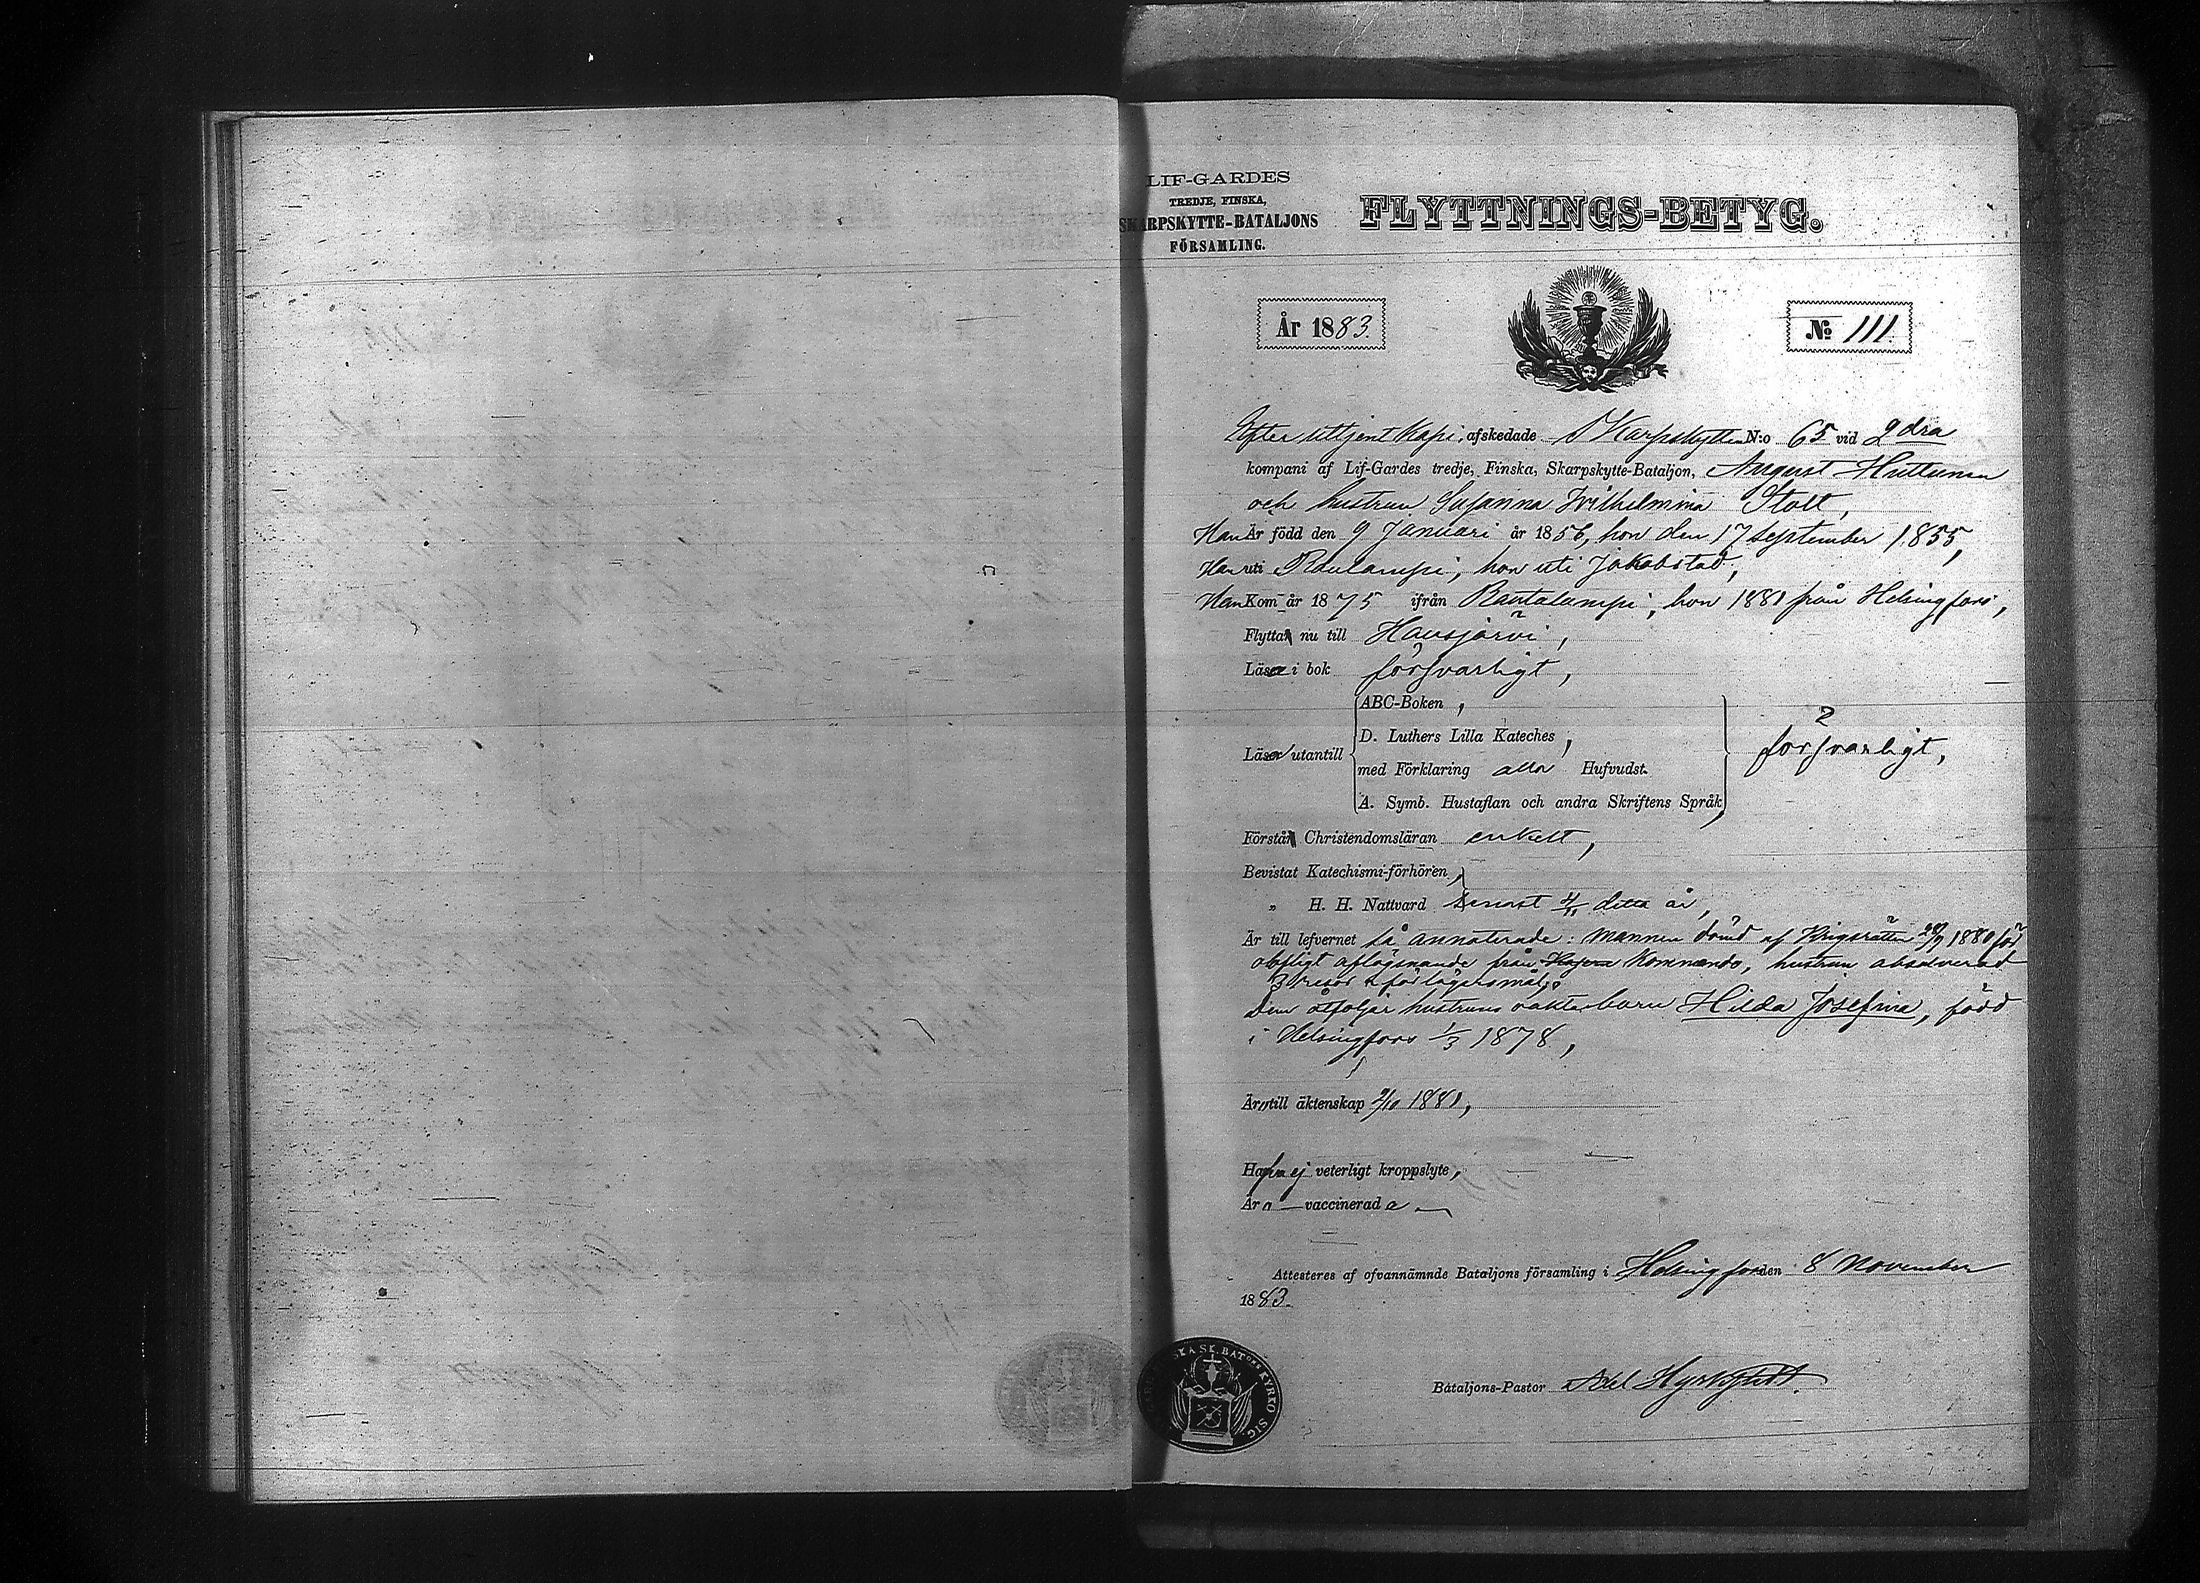 LIF-GARDES
TREDJE, FINSKA,
SKARPSKYTTE-BATALJONS
FÖRSAMLING.
FLYTTNINGS-BETYG.
År 1883.
No 111.
Efter uttjent Kapi. afskedade Skarpskytten N:o 65 vid 2dra
kompani af Lif-Gardes tredje, Finska, Skarpskytte-Bataljon, August Huttunen
och hustrun Susanna Wilhelmina Stolt,
Han Är född den 9 Januari år 1856, hon den 17 September 1855,
Han uti Rautalampi, hon uti Jakobstad,
Han Kom år 1875 ifrån Rautalampi, hon 1881 från Helsingfors,
Flytta nu till Hausjärvi,
Läsa i bok försvarligt,
Läsa utantill
ABC-Boken,
D. Luthers Lilla Kateches,
med Förklaring alla Hufvudst.
A. Symb. Hustaflan och andra Skriftens Språk,
försvarligt,
Förstå Christendomsläran enkelt,
Bevistat Katechismi-förhören,
„ H. H. Nattvard senast 4/11 detta år,
Är till lefvernet så annoterade: mannen dömd af Krigsrätten 28/9 1880 för
olofligt aflägsnande från Kommendo, hustrun absolverad
3 resor för lägersmål,
Dem åtföljer hustruns oäkta barn Hilda Josefina, född
i Helsingfors 1/3 1878,
Äro till äktenskap 2/10 1881,
Hafva ej veterligt kroppslyte,
Äro vaccinerada
Attesteres af ofvannämnde Bataljons församling i Helsingfors den 8 November
1883.
Bataljons-Pastor Adel Hyrkstedt.
SKA SK. BAT:ONS KYRKO SIG.